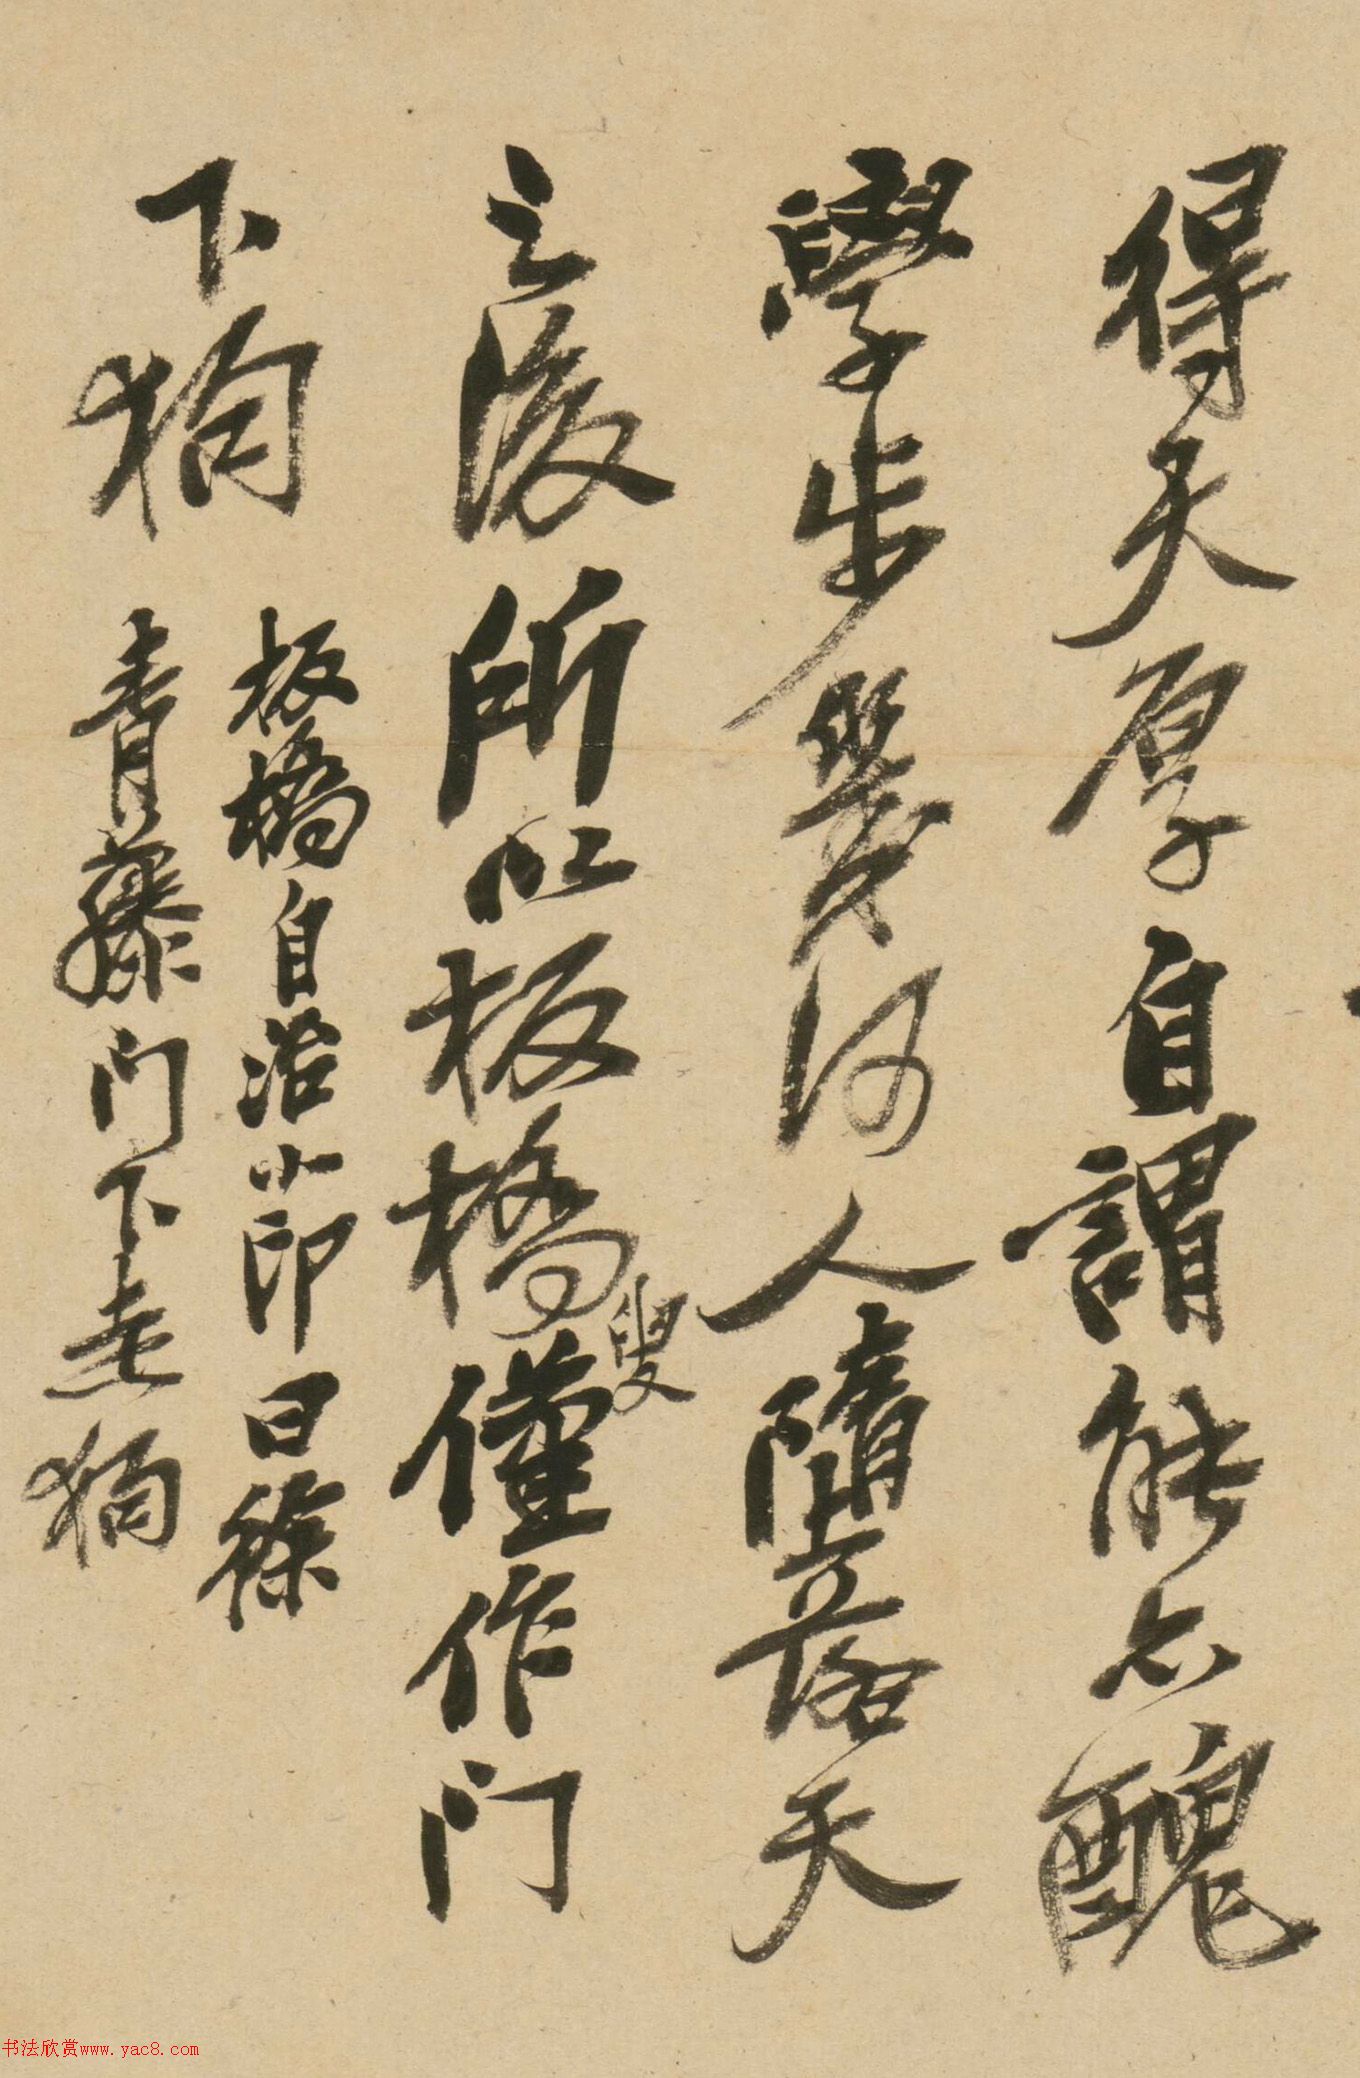 得天厚自謂能不醜
學步幾何人墮落天
之後所以板橋叟僅作門
下狗
板橋自治小印曰徐
青藤門下走狗
书法欣赏www.yac8.com